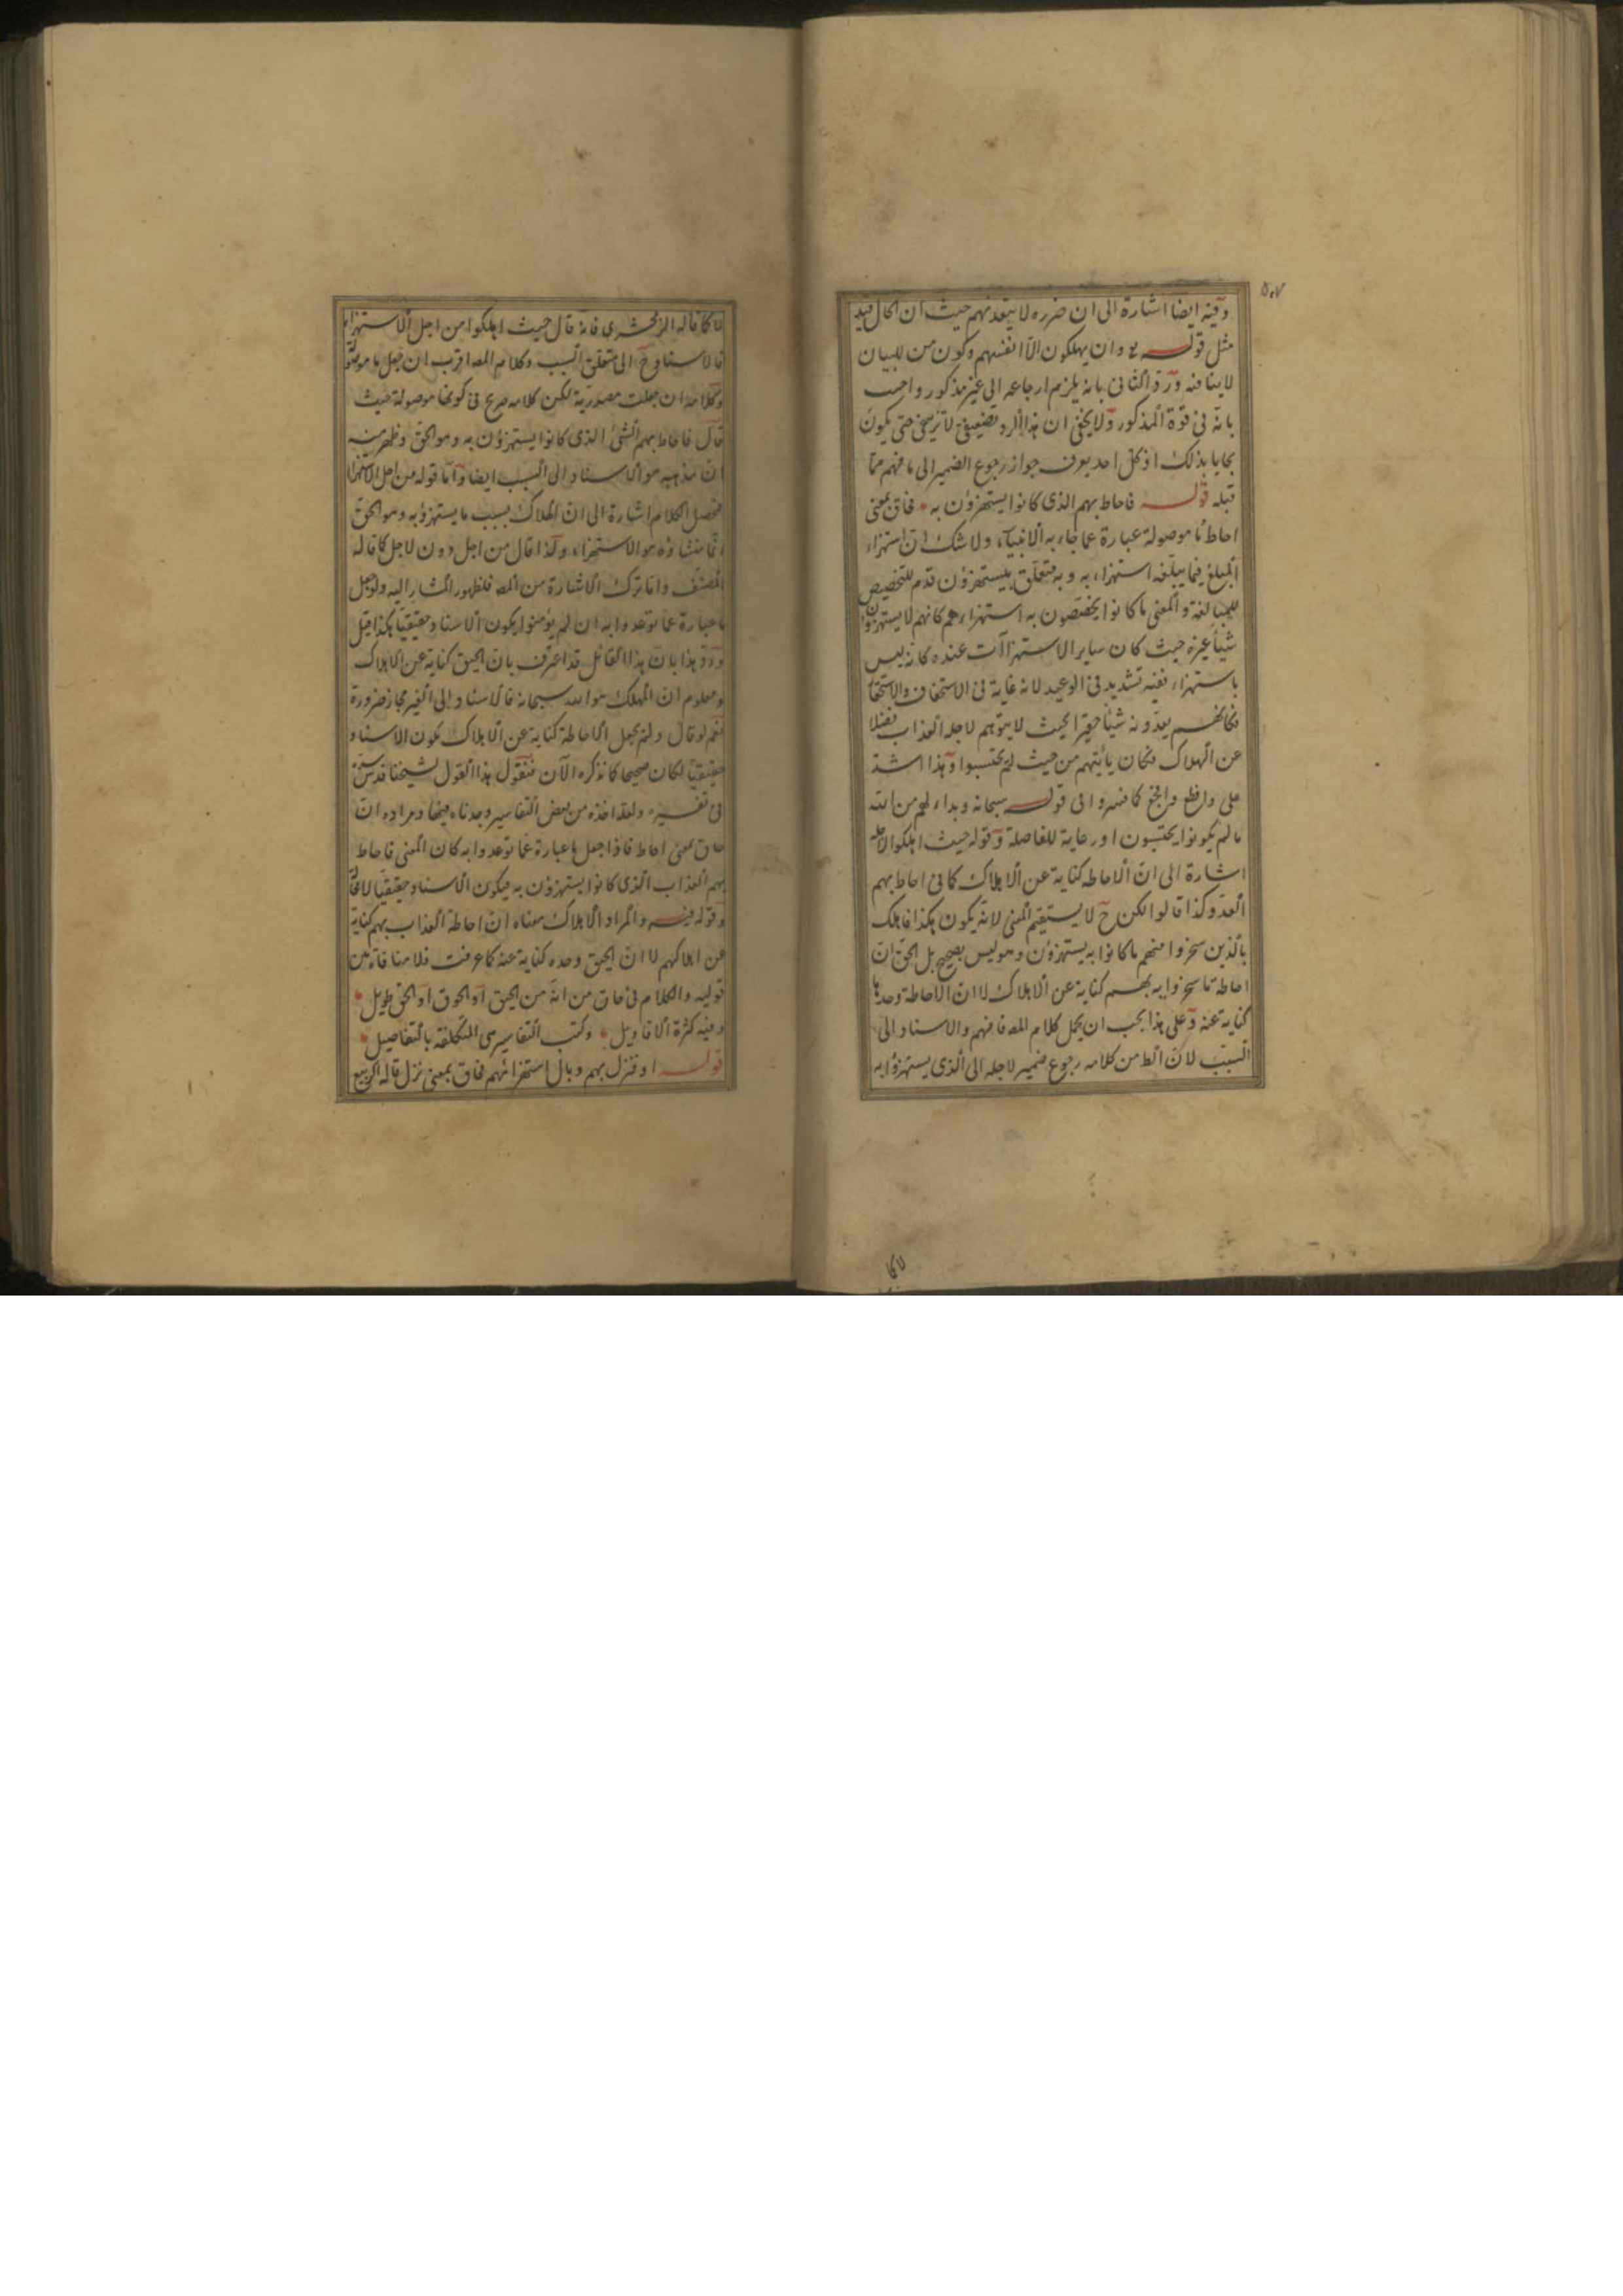 ٥٠٧
وفيه ايضا اشارة الى ان ضرره لا يتعد منهم حيث ان الحال قيد
مثل قوله تع وان يهلكون الا انفسهم وكون من للبيان
لا ينافيه ورد الثانى بانه يلزم ارجاعه الى غير مذكور واجيب
بانه فى قوة المذكور ولا يخفى ان هذا الرد تضعيفى لا تزييفى حتى يكون
مجابا بذلك اذ كل احد يعرف جواز رجوع الضمير الى ما فهم مما
قبله قوله فاحاط بهم الذى كانوا يستهزؤن به فحاق بمعنى
احاط ما موصولة عبارة عما جاء به الانبياء ولا شك ان استهزاء
المبلغ فيما يبلغه استهزاء به وبه متعلق بيستهزؤن قدم للتخصيص
للمبالغة والمعنى ما كانوا يختصون به استهزاءهم كانهم لا يستهزؤن
شيئا غيره حيث كان ساير الاستهزاآت عنده كانه ليس
باستهزاء ففيه تشديد فى الوعيد لانه غاية فى الاستخفاف والاستحقا
فكانهم يعدونه شيئا حقيرا بحيث لا يتوهم لاجله العذاب فضلا
عن الهلاك فكان ياتيهم من حيث لم يحتسبوا وهذا اشد
على وافظع كما فسروا فى قوله سبحانه وبداء لهم من الله
ما لم يكونوا يحتسبون او رعاية للفاصلة وقوله حيث اهلكوا لاجله
اشارة الى ان الاحاطه كناية عن الاهلاك كما فى احاط بهم
العدو كذا قالوا لكن ح لا يستقيم المعنى لانه يكون هكذا فاهلك
بالذين سخروا منهم ما كانوا به يستهزؤن وهو ليس بصحيح بل الحق ان
احاطة ما سخروا به بهم كناية عن الاهلاك لا ان الاحاطة وحدها
كناية عنه وعلى هذا يجب ان يحمل كلام المص فافهم والاسناد الى
السبب لان الظ من كلامه رجوع ضمير لاجله الى الذى يستهزؤا به
لا كما
لا كما قاله الزمخشرى فانه قال حيث اهلكوا من اجل الاستهزاء
فالاسناد ح الى متعلق السبب وكلام المص اقرب ان جعل ما موصولة
وكلامه ان جعلت مصدرية لكن كلامه صريح فى كونها موصولة حيث
قال فاحاط بهم الشئ الذى كانوا يستهزؤن به وهو الحق وظهر منه
ان مذهبه هو الاسناد الى السبب ايضا واما قوله من اجل الاستهزا
فحصل الكلام اشارة الى ان الهلاك بسبب ما يستهزؤ به وهو الحق
انما منشاؤه هو الاستهزاء ولذا قال من اجل دون لاجل كما قاله
المصنف وانما ترك الاشارة من المص فلظهور المشار اليه ولو جعل
ما عبارة عما توعدوا به ان لم يؤمنوا يكون الاسناد حقيقيا هكذا قيل
ورد هذا بان هذا القائل قد اعترف بان الحيق كناية عن الاهلاك
ومعلوم ان المهلك هو الله سبحانه فالاسناد الى الغير مجاز ضرورة
نعم لو قال ولم يجعل الاحاطة كناية عن الاهلاك يكون الاسناد
حقيقيا لكان صحيحا كما نذكره الآن فنقول هذا القول لشيخنا قدس سره
فى تفسيره ولعله اخذه من بعض التفاسير وجدناه فيها ومراده ان
حاق بمعنى احاط فاذا جعل ما عبارة عما توعدوا به كان المعنى فاحاط
بهم العذاب الذى كانوا يستهزؤن به فيكون الاسناد حقيقيا لا محالة
وقوله فيه والمراد الاهلاك معناه ان احاطة العذاب بهم كناية
عن اهلاكهم لا ان الحيق وحده كناية عنه كما عرفت فلا منافاة بين
قوليه والكلام فى حاق من انه من الحيق او الحوق او الحق طويل
وفيه كثرة الاقاويل وكتب التفاسير هى المتكلفة بالتفاصيل
قوله او فنزل بهم وبال استهزائهم فحاق بمعنى نزل قاله الربيع